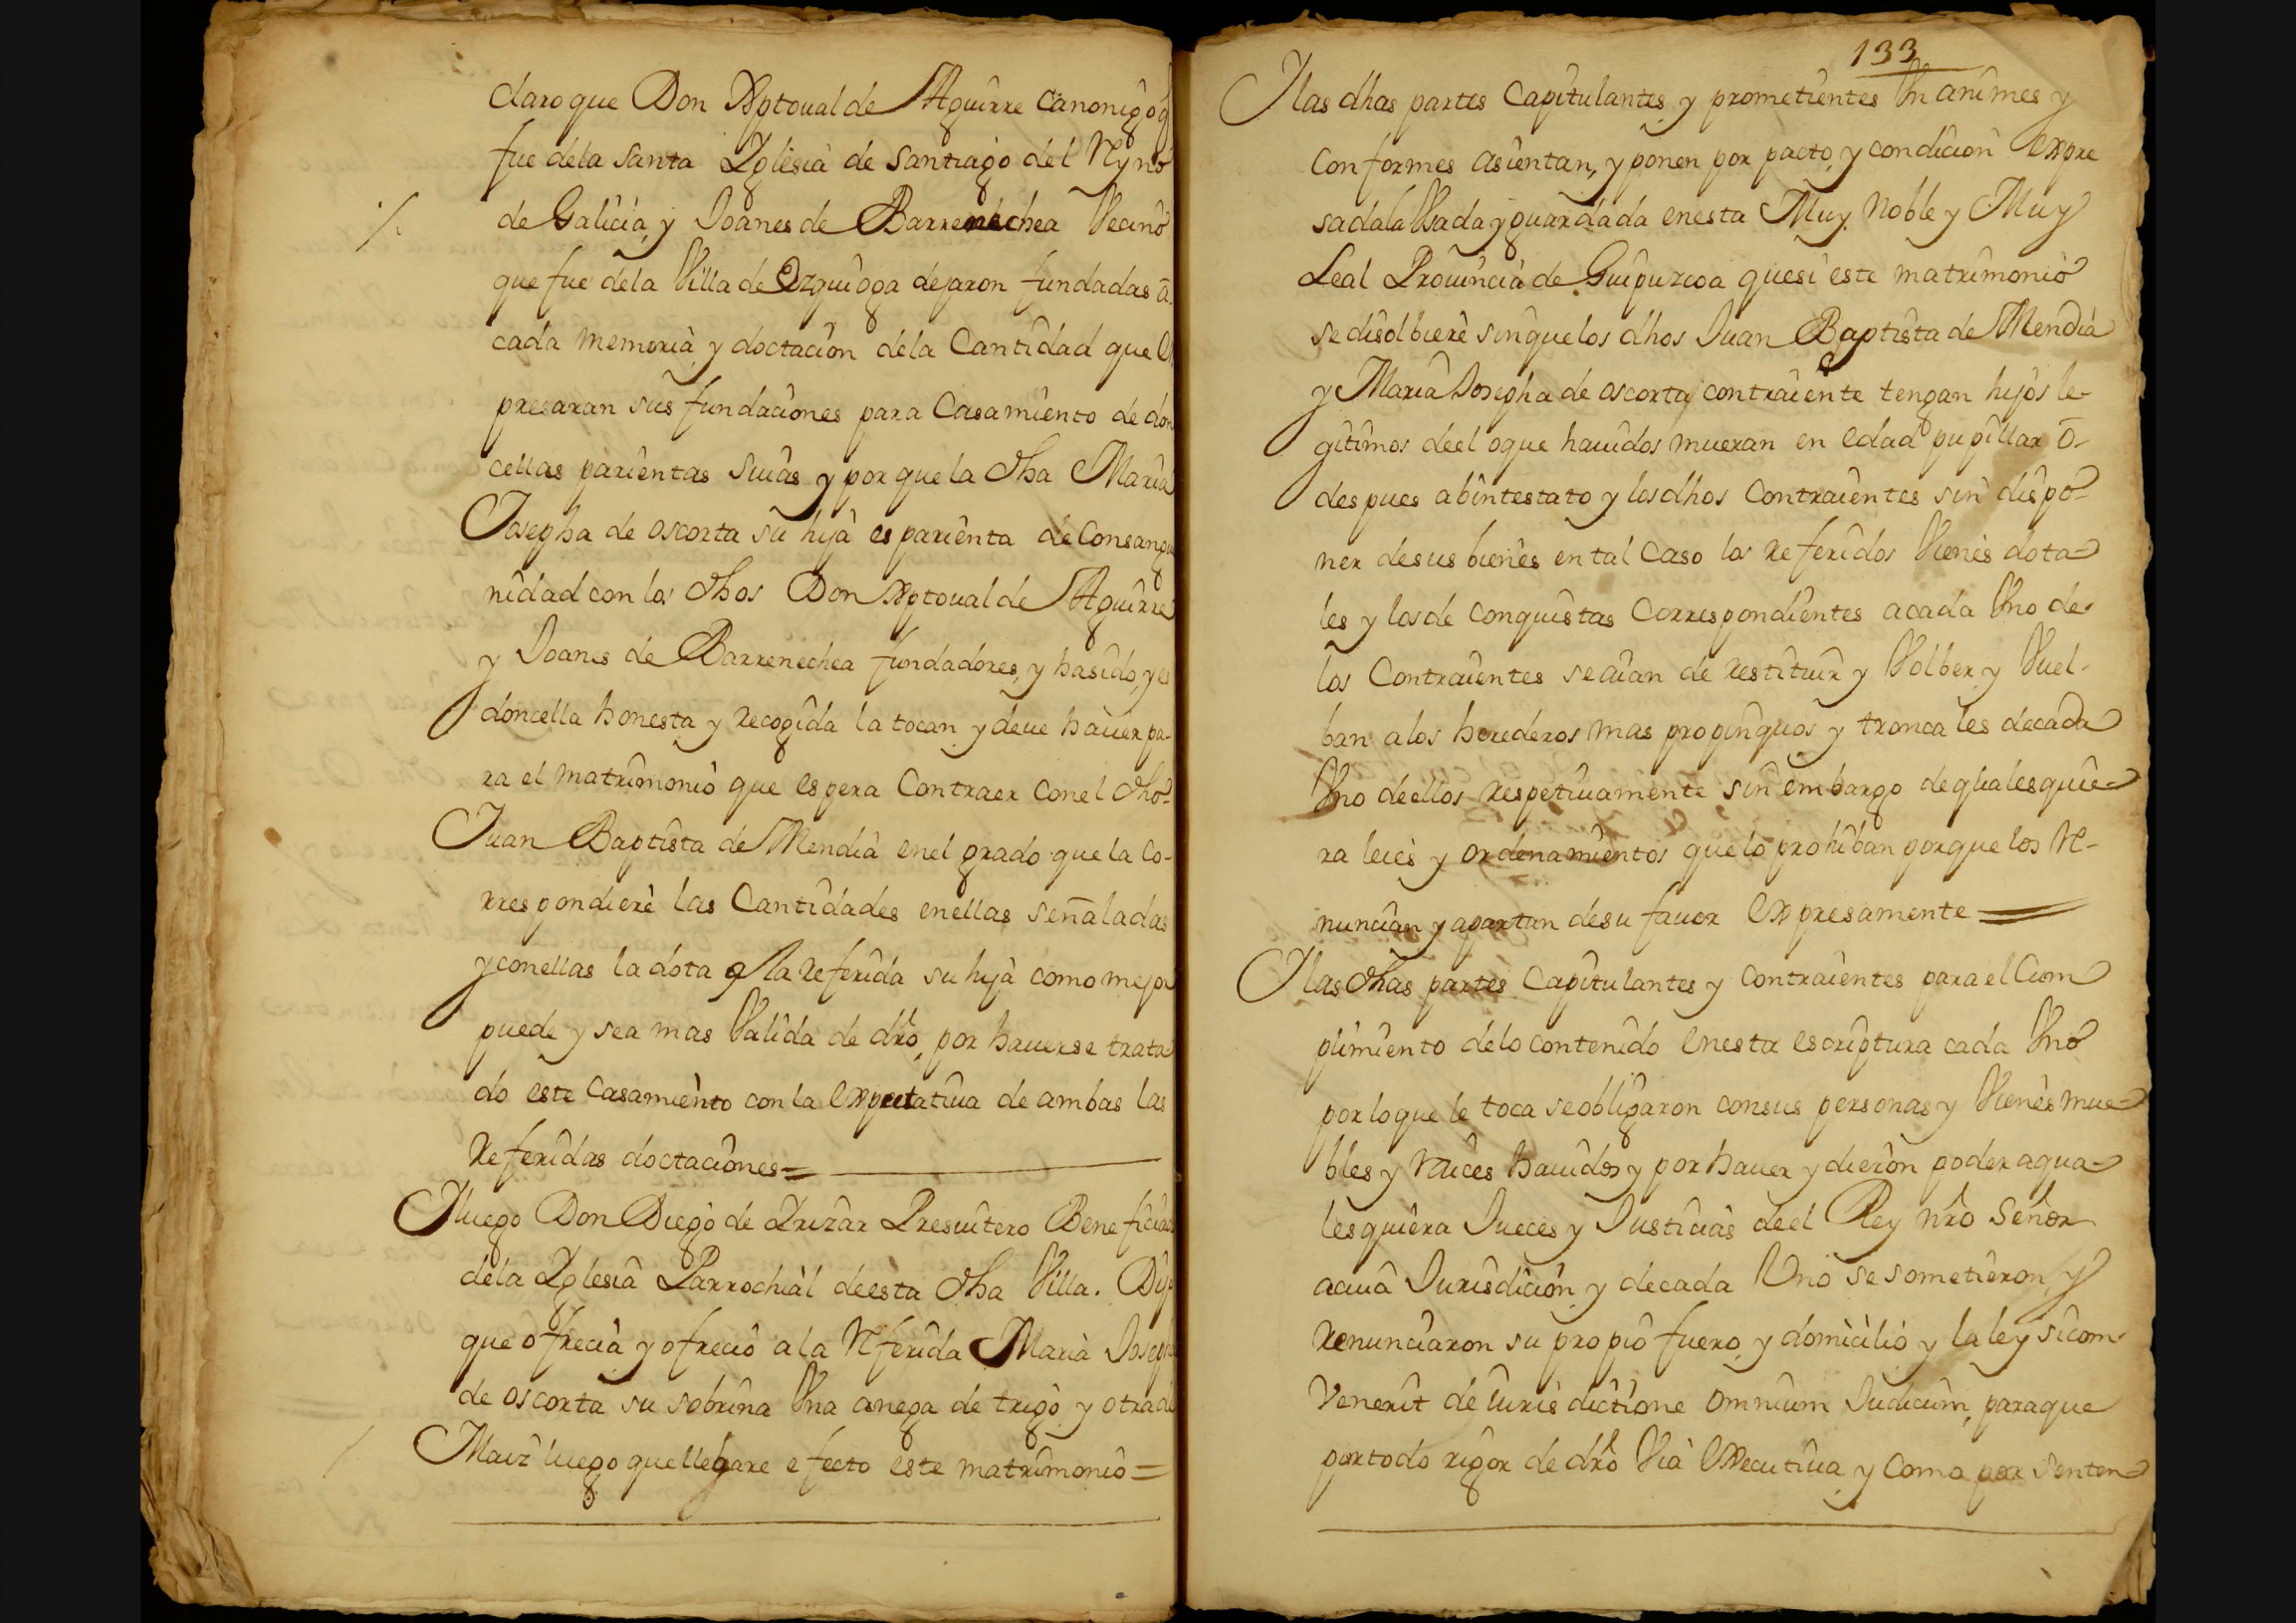 claro que Don Xptoual de Aguirre Canonigo q
fue dela santa Iglesia de santiago del Ryno
de Galicia y Joanes de Barrenechea Vecino
que fue dela Villa de Ozquioga dejaron fundadas a
cada memoria y doctacion dela Cantidad que Ex
presaran sus fundaciones para Casamiento de don
cellas parientas suias y por que la dha Maria
Josepha de oscorta su hija es parienta de Consangu
nidad con los dhos Don Xptoual de Aguirre
y Joanes de Barrenechea fundadores, y hasido, y es
doncella honesta y recogida la tocan y deue hauer pa-
ra el matrimonio que espera Contraer Conel dho
Juan Baptista de Mendia enel grado que la Co-
rrespondiere las Cantidades enellas señaladas
y conellas la dota a la referida su hija como mejor
puede y sea mas Valida de dro, por hauerse trata
do este Casamiento con la Expectatiua de ambas las
Referidas doctaciones=
Iluego Don Diego de Irizar Presuitero Beneficiad
dela Iglesia Parrochial deesta dha Villa. Dijo
que ofrecia y ofrecio a la Referida Maria Josepha
de oscorta su sobrina Vna anega de trigo y otra de
Maiz luego que llegare e fecto este matrimonio=
133
Ilas dhas partes Capitulantes y prometientes Vnanimes y
Conformes asientan, y ponen por pacto, y condicion Expre
sada la Vsada y guardada enesta Muy Noble y Muy
Leal Prouincia de Guipuzcoa quesi este matrimonio
se disolbiere sinque los dhos Juan Baptista de Mendia
y Maria Josepha de oscorta contraiente tengan hijos le-
gitimos deel oque hauidos mueran en edad pupillar o-
despues abintestato y los dhos Contraientes sin dispo-
ner desus bienes en tal Caso los referidos Vienes dota-
les y los de conquistas Correspondientes acada Vno de
los Contraientes se aian de restituir y Volber y Vuel-
ban alos herederos mas propinquos y troncales decada
Vno deellos respetiuamente sin embargo de qualesquie-
ra leies y ordenamientos que lo prohiban porque los Re-
nuncian y apartan desu fauor Expresamente
Ilas dhas partes Capitulantes y Contraientes para el Cum
plimiento delo contenido Enesta escriptura cada Vno
por lo que le toca se obligaron consus personas y Vienes mue-
bles y raices hauidos y por hauer y dieron poder aqua-
lesquiera Jueces y Justicias deel Rey nro Señor
acuia Jurisdicion y decada Uno se sometieron, y
Renunciaron su propio fuero, y domicilio y la ley sicom
Venerit de iuris dictione omnium Judicum, paraque
por todo rigor de dro Via Executiua y Como por senten-